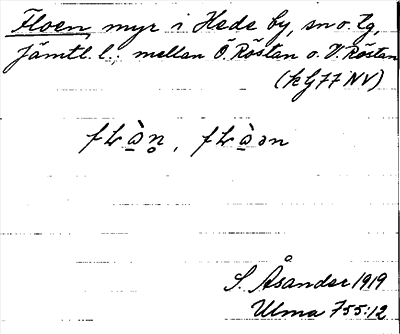 Floen, myr i Hede by, sn o. tg,
Jämtl. l.; mellan Ö. Röstan o. V. Röstan
(k G 77 NV)
S. Åsander 1919
Ulma 755:12